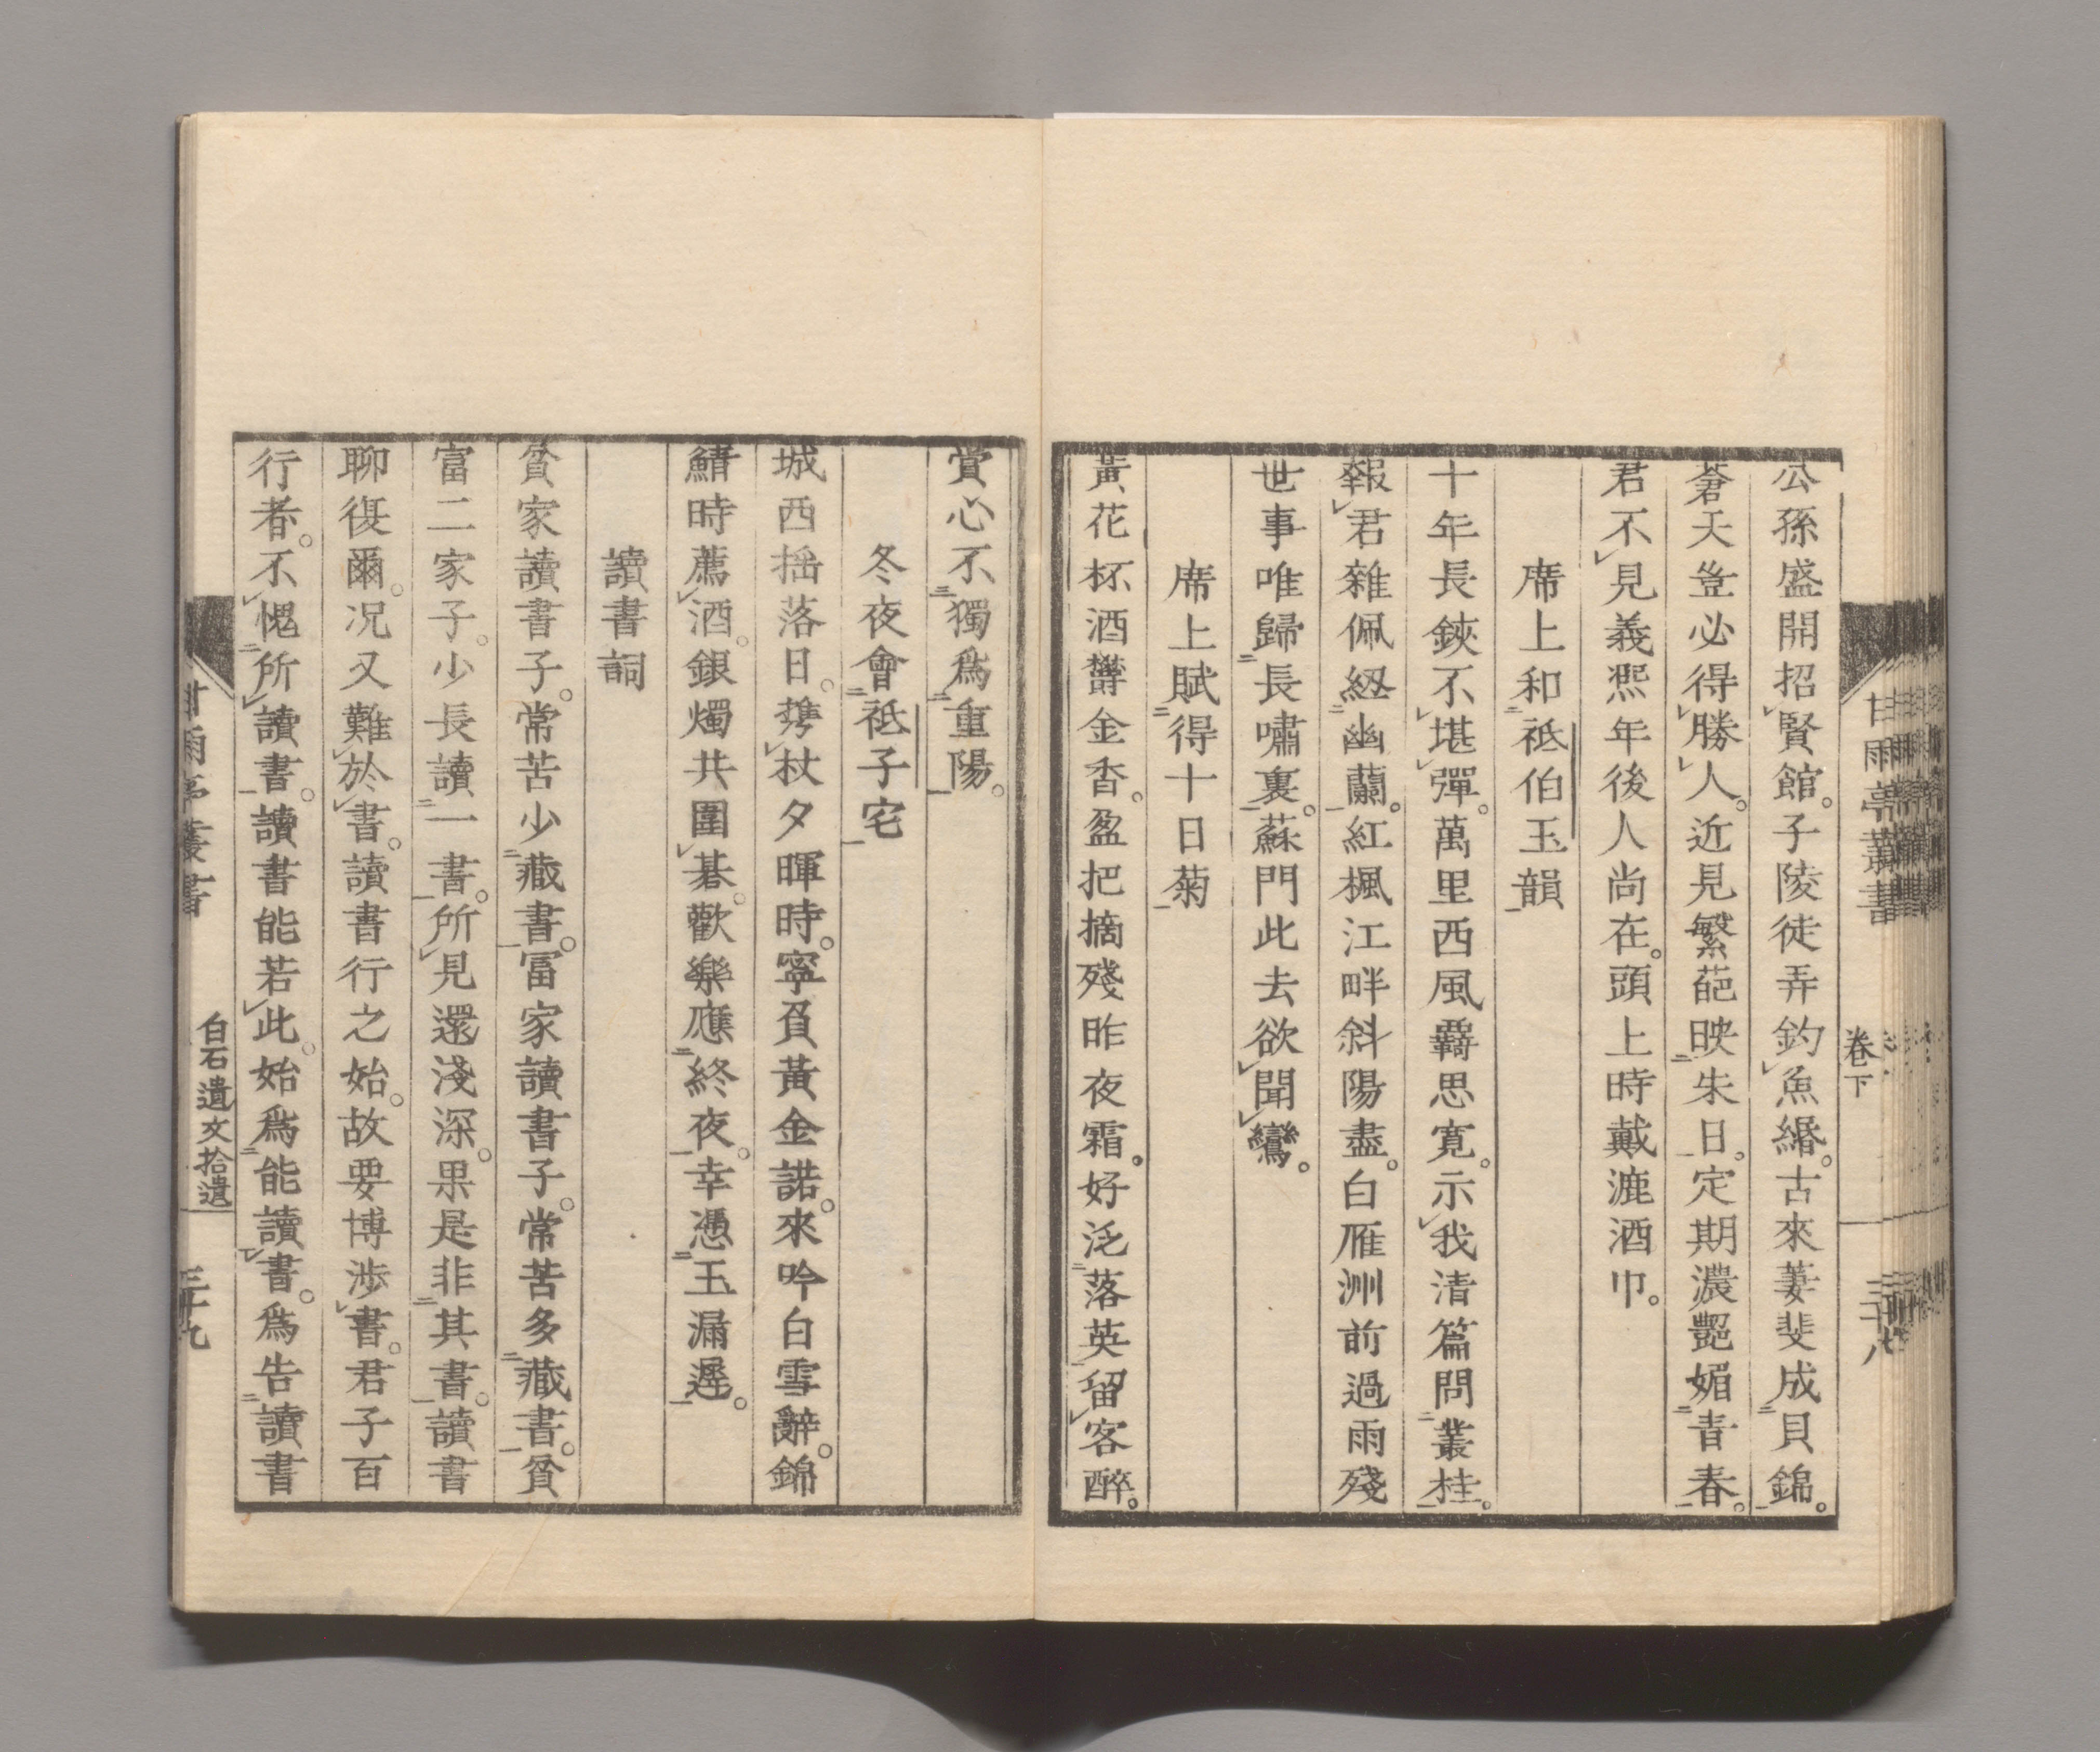 甘雨亭叢書
卷下
三十八
公孫盛開招賢館。子陵徒弄釣魚緡。古來萋斐成貝錦。
蒼天豈必得勝人。近見繁葩映朱日。定期濃艷媚青春。
君不見義熙年後人尚在。頭上時戴漉酒巾。
席上和祗伯玉韻
十年長鋏不堪彈。萬里西風覉思寬。示我清篇問叢桂。
報君雜佩紉幽蘭。紅楓江畔斜陽盡。白雁洲前過雨殘
世事唯歸長嘯裏。蘇門此去欲聞鸞。
席上賦得十日菊
黃花杯酒欝金香。盈把摘殘昨夜霜。好泛落英留客醉。
賞心不獨爲重陽。
冬夜會祗子宅
城西搖落日。攜杖夕暉時。寧負黃金諾。來吟白雪辭。錦
鯖時薦酒。銀燭共圍碁。歡樂應終夜。幸憑玉漏遲。
讀書詞
貧家讀書子。常苦少藏書。富家讀書子。常苦多藏書。貧
富二家子。少長讀一書。所見還淺深。果是非其書。讀書
聊復爾。況又難於書。讀書行之始。故要博涉書。君子百
行者。不愧所讀書。讀書能若此。始爲能讀書。爲告讀書
甘雨亭叢書
白石遺文拾遺
三十九